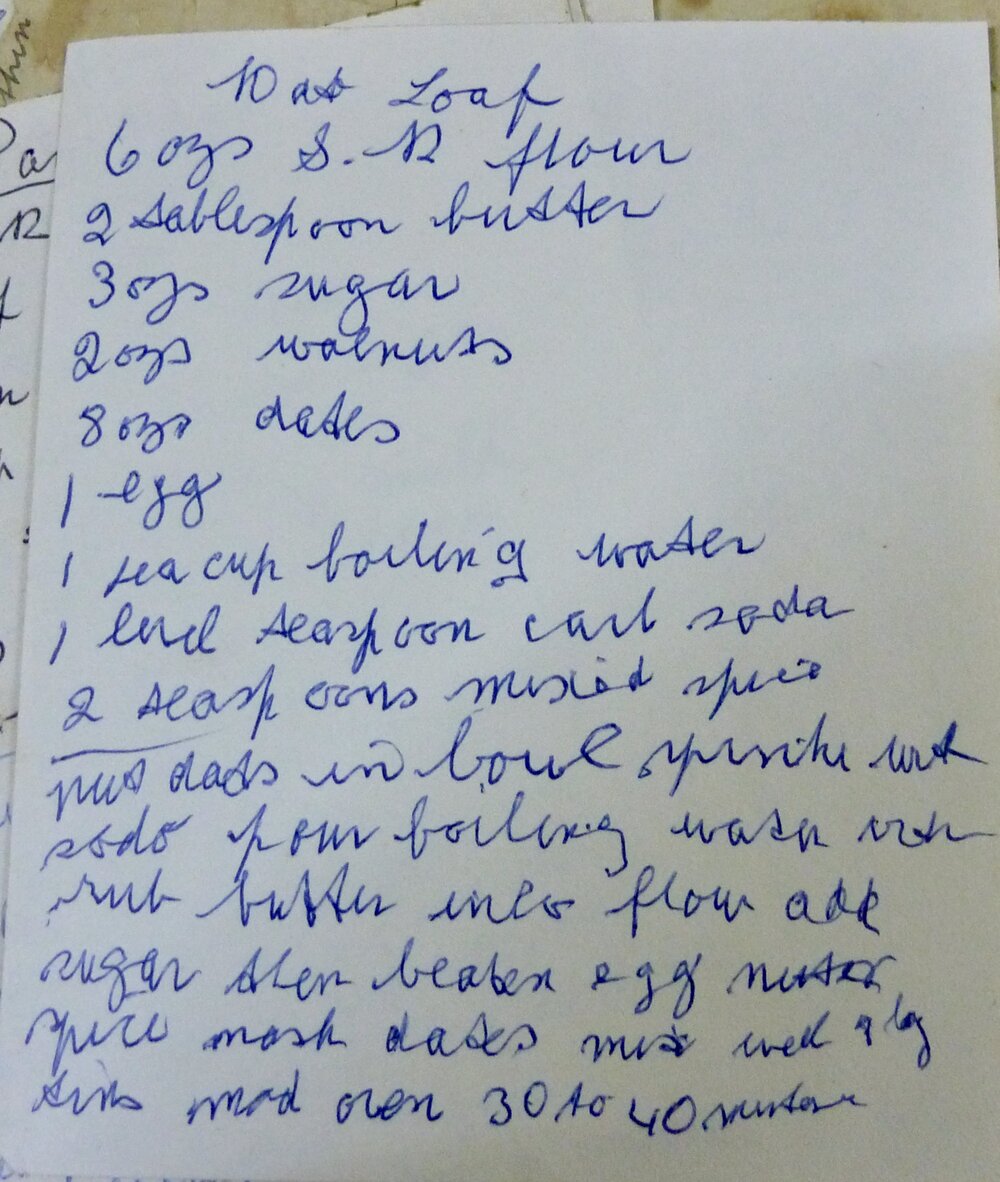 Dat Loaf
6 ozs S.R flour
2 tablespoon butter
3ozs sugar
2ozs walnuts
8ozs dates
1 egg
1 teacup boiling water
1 level teaspoon carb soda
2 teaspoons mixed spice
put dates in bowl sprinkle with
soda pour boiling water over
rub butter into flour add
sugar then beaten egg
spice mash dates mix well
tins mod oven 30 to 40